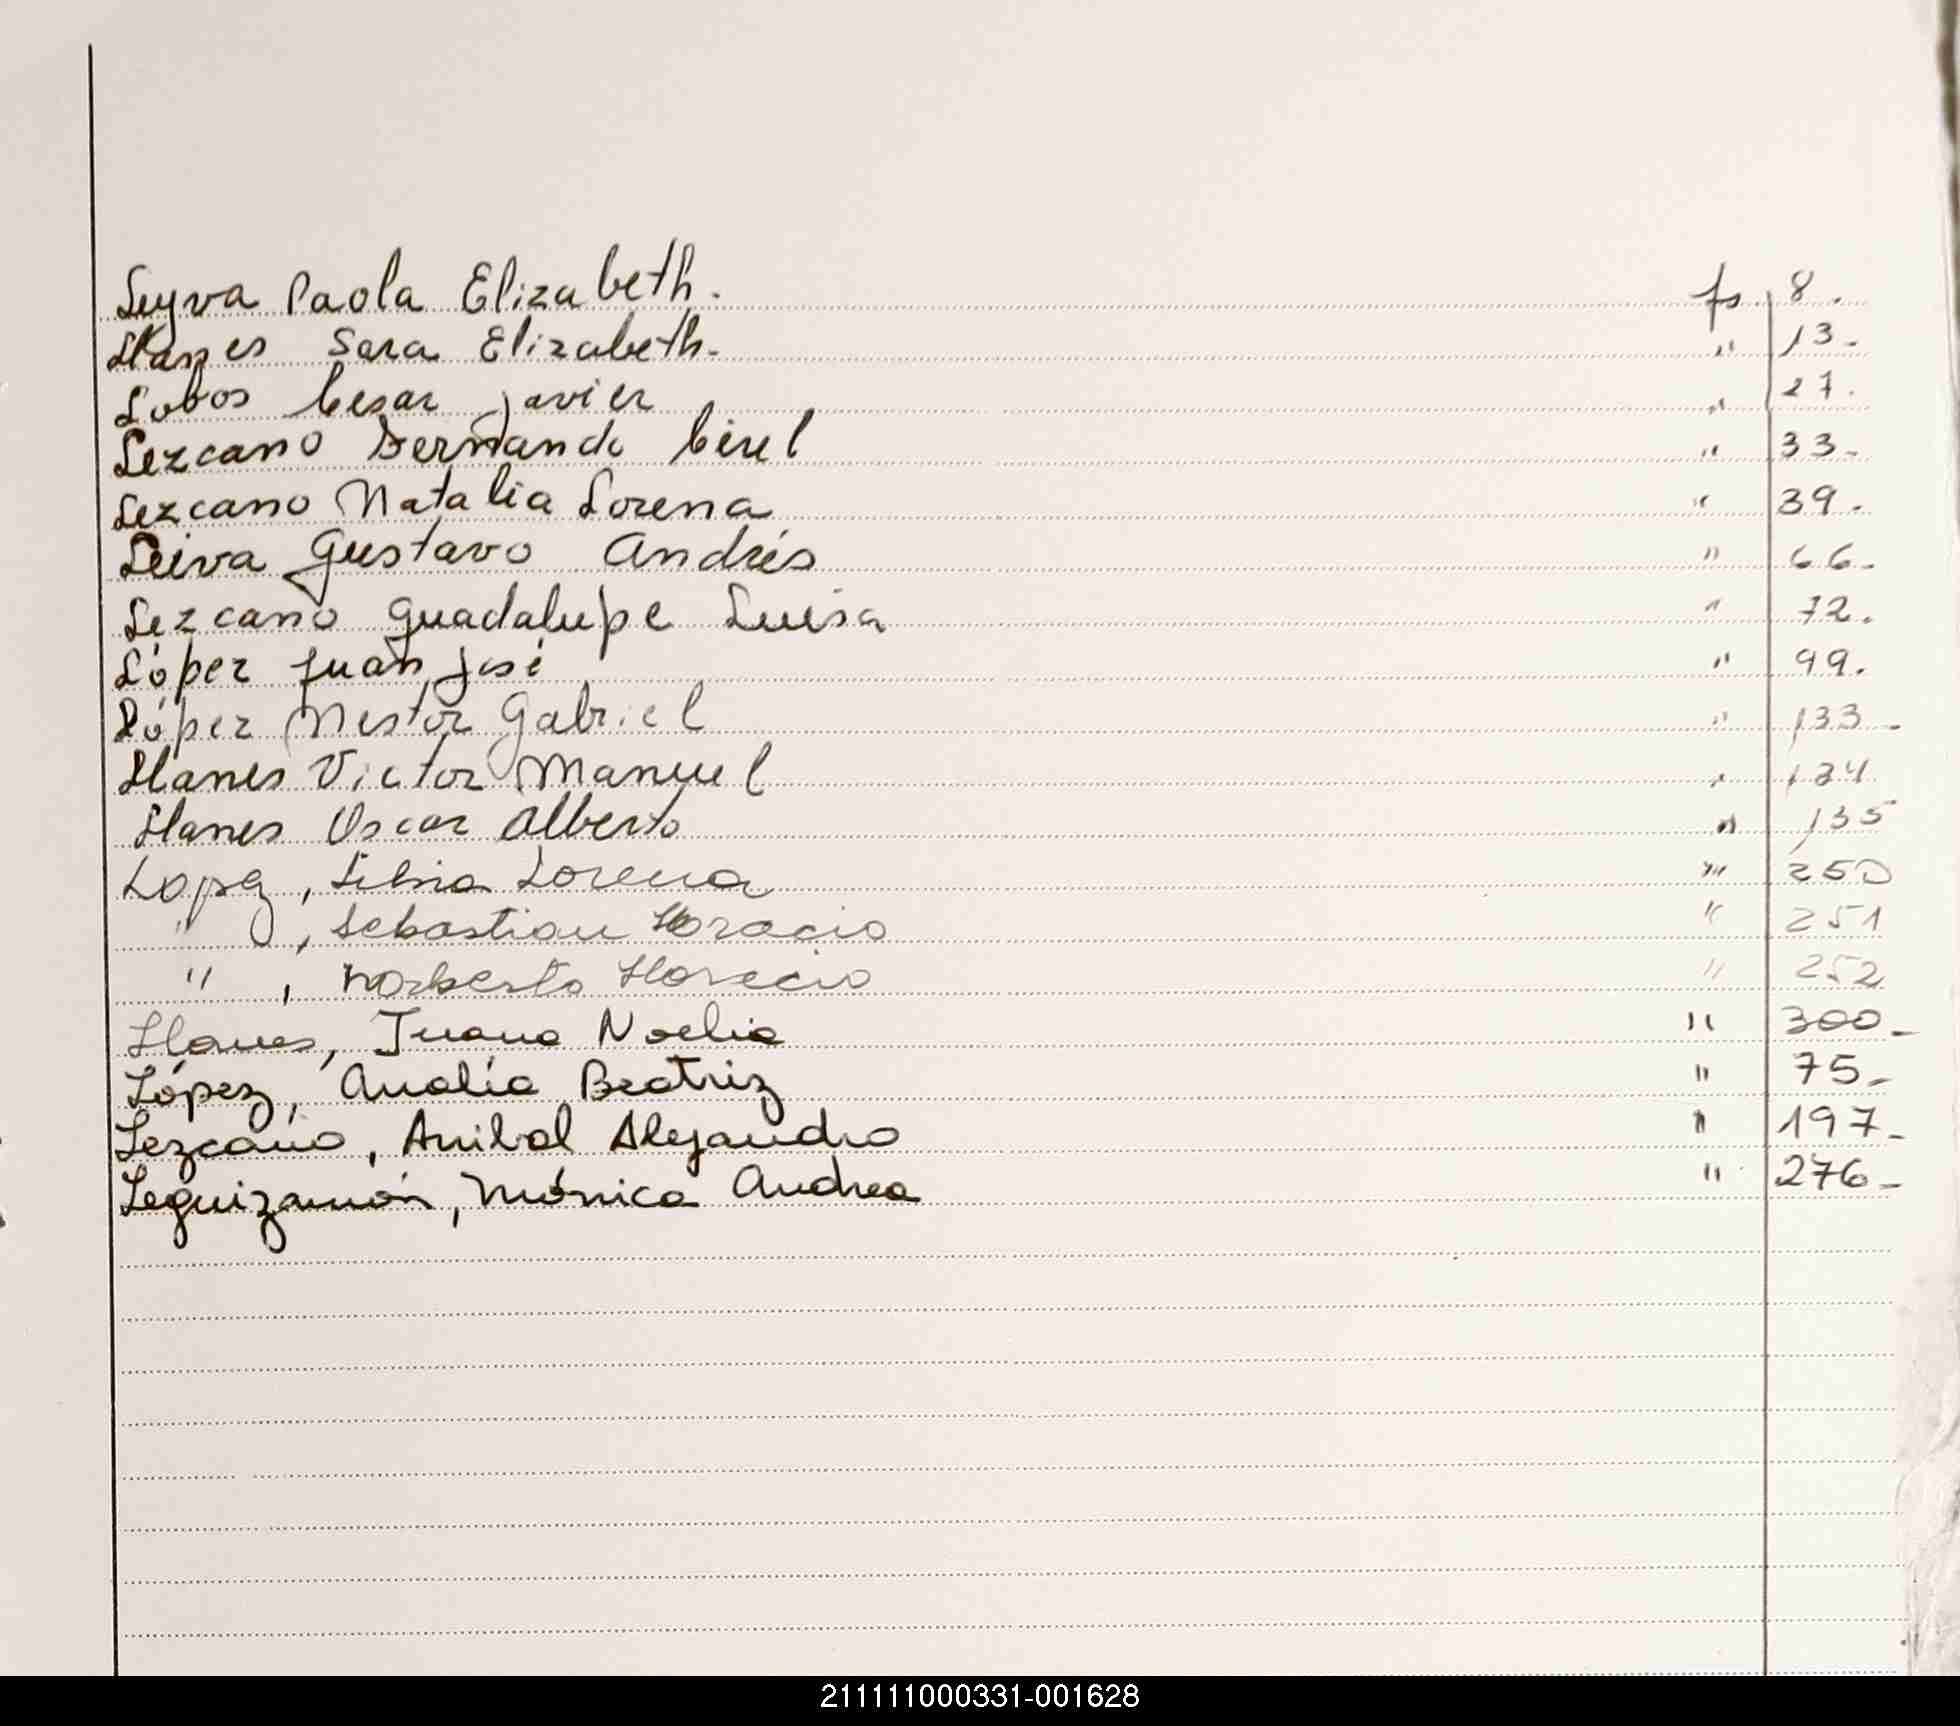 Leyva Paola Elizabeth. fs. 8.
Llanes Sara Elizabeth. " 13.
Lobos Cesar Javier " 27.
Lezcano Fernando Ciril " 33.
Lezcano Natalia Lorena " 39.
Leiva Gustavo Andrés " 66.
Lezcano Guadalupe Luisa " 72.
López Juan José " 99.
López Nestor Gabriel " 133.
Llanes Victor Manuel " 134
Llanes Oscar Alberto " 135
Lopez, Silvia Lorena " 250
" , Sebastian Horacio " 251
" , Norberto Horacio " 252
Llanes, Juana Noelia " 300-
López, Analía Beatriz " 75-
Lezcano, Anibal Alejandro " 197-
Leguizamón, Mónica Andrea " 276-
211111000331-001628